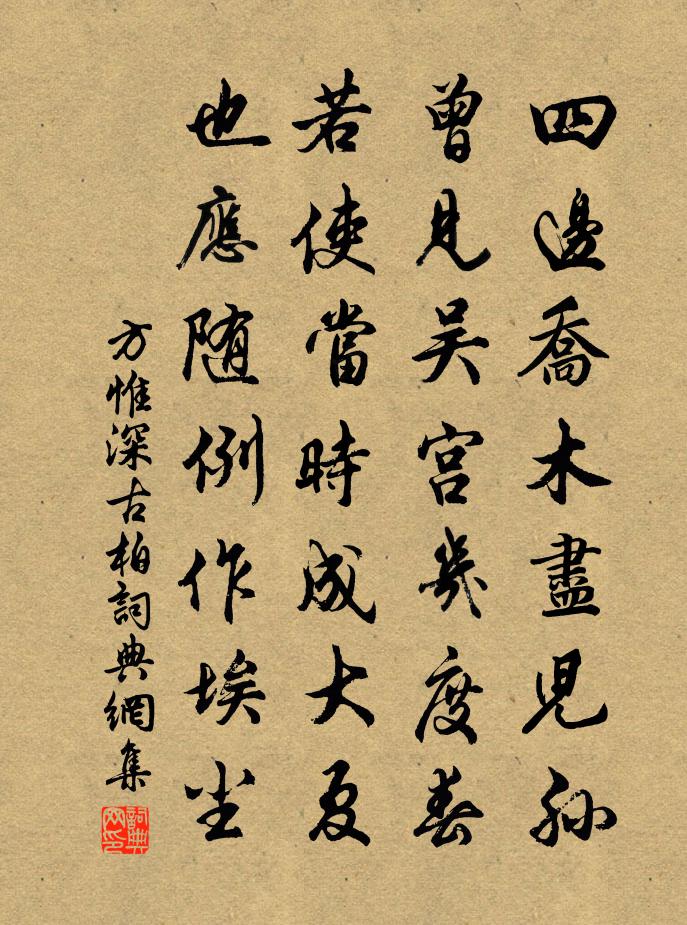 四邊喬木盡児孫
曾見吴宫幾度春
若使當時成大夏
也應随例作埃尘
方惟深古柏詞典網集
詞典網印